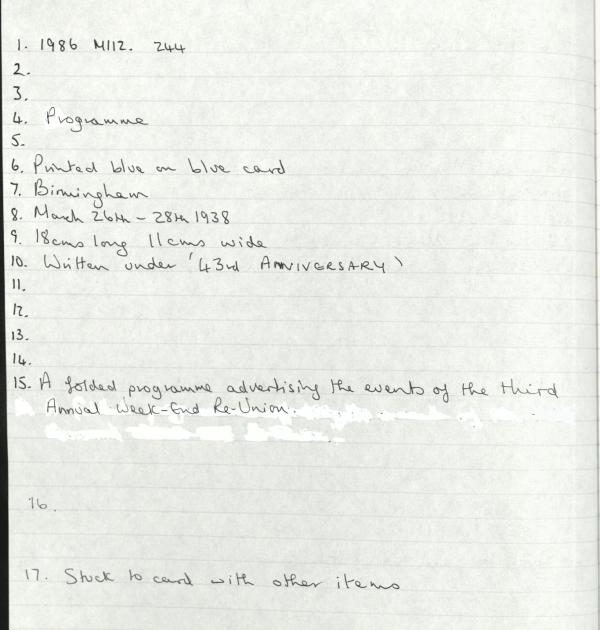 1. 1986 M112. 244
2.
3.
4. Programme
5.
6. Printed blue on blue card
7. Birmingham
8. March 26th - 28th 1938
9. 18cms long 11cms wide
10. Written under '43rd ANNIVERSARY'
11.
12.
13.
14.
15. A folded programme advertising the events of the third
Annual Week-End Re-Union.
16.
17. Stuck to card with other items